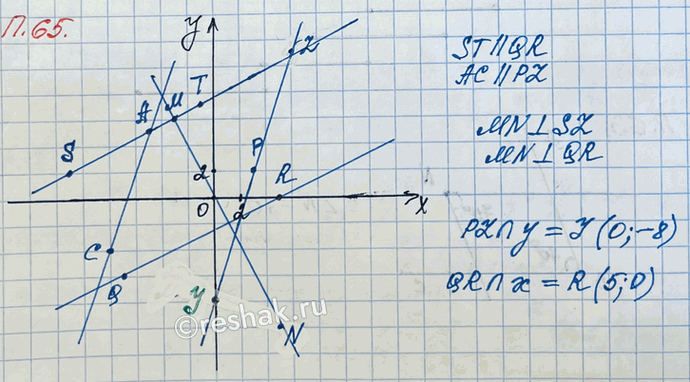 П. 65.
y
L
T
M
A
S
P
2
R
O
2
x
C
Q
Y
N
ST∥QR
AC∥PL
MN⊥SL
MN⊥QR
PL∩y = Y(0;-8)
QR∩x = R(5;0)
©reshak.ru